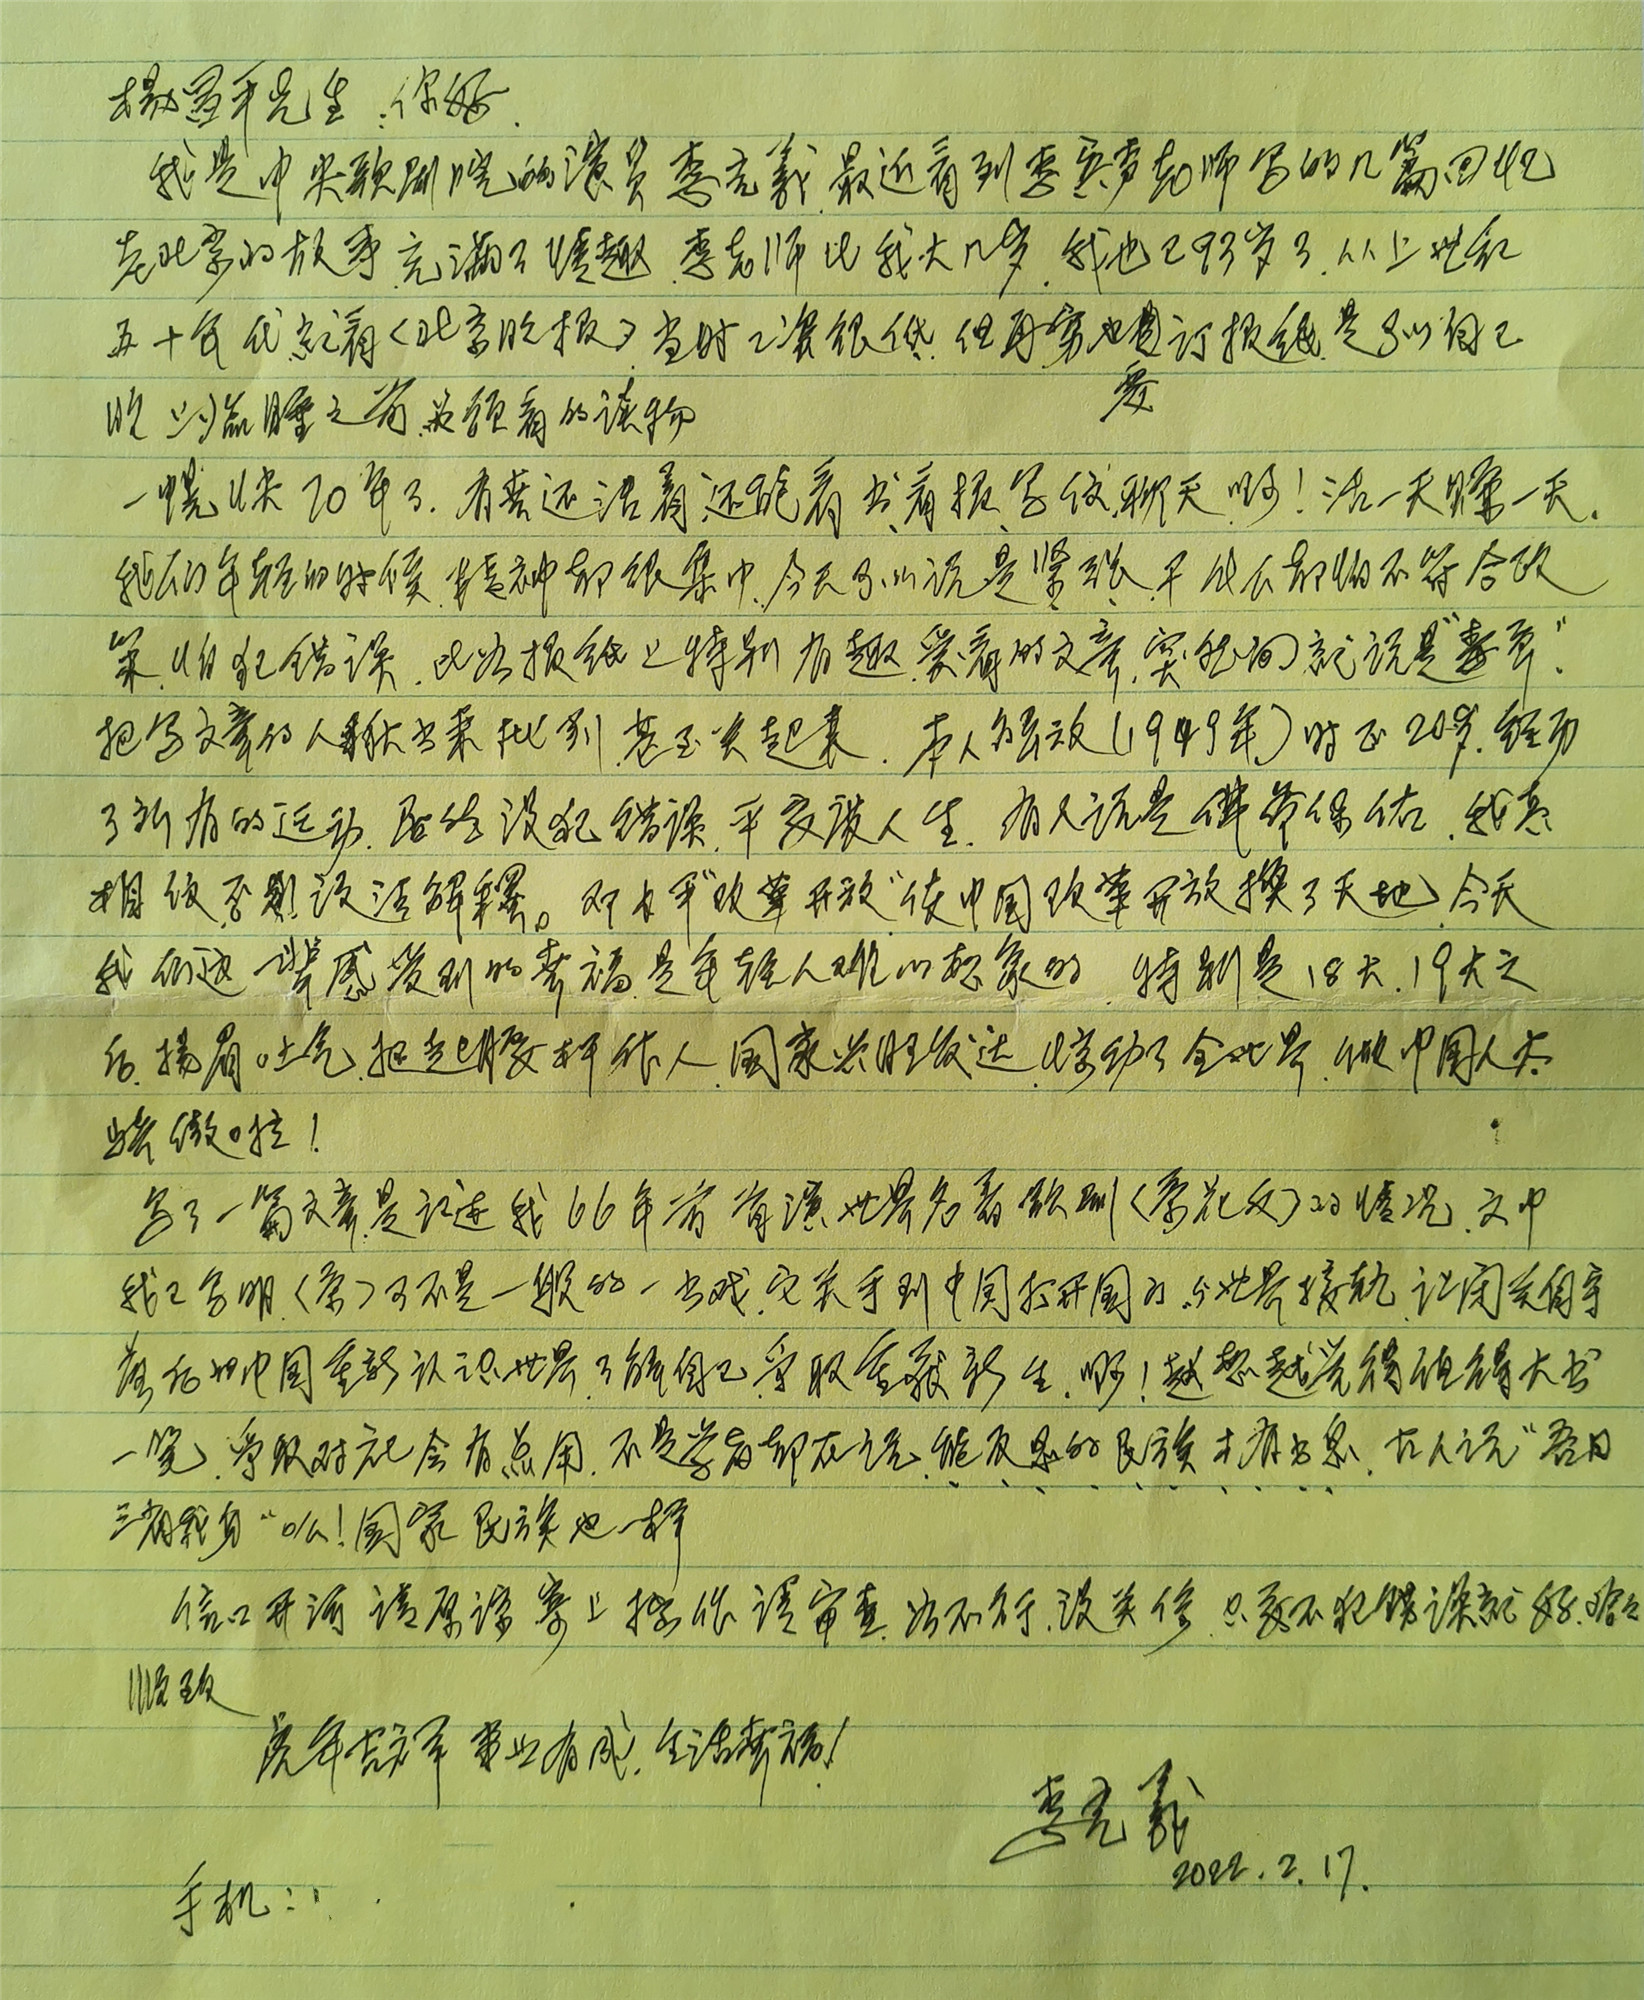 杨昌平先生：你好.
我是中央歌剧院的演员李光羲.最近看到李滨声老师写的几篇回忆
老北京的故事充满了情趣.李老师比我大几岁.我也已93岁了.从上世纪
五十年代就看《北京晚报》.当时工资很低.但再穷也要订报纸.是了以自己
要
晚上临睡之前必须看的读物
一晃快70年了.有幸还活着还能看书看报写信聊天.啊！活一天赚一天.
我们年轻的时候.精神都很集中.今天可以说是紧张.干什么都怕不符合政
策.怕犯错误.比如报纸上特别有趣.爱看的文章.突然间就说是“毒草”.
把写文章的人揪出来批判.甚至关起来.本人解放(1949年)时正20岁.经历
了所有的运动.居然没犯错误.平安渡人生.有人说是佛爷保佑.我真
相信否则没法解释。邓小平“改革开放”使中国改革开放换了天地.今天
我们这一辈感受到的幸福.是年轻人难以想象的.特别是18大.19大之
后.扬眉吐气.挺起腰杆做人.国家兴旺发达.惊动了全世界.做中国人太
骄傲啦！
写了一篇文章.是记述我66年前首演世界名著歌剧《茶花女》的情况.文中
我已写明《茶》可不是一般的一出戏.它关乎到中国打开国门.与世界接轨.让闭关自守
落后的中国重新认识世界.了解自己.争取重获新生.啊！越想越觉得值得大书
一笔.争取对社会有点用.不是学者都在说.能反思的民族才有出息.古人说“吾日
三省我身”么！国家民族也一样
信口开河请原谅.寄上拙作请审查.如不行.没关系.只要不犯错误就好.哈哈
顺致
虎年吉祥事业有成.生活幸福！
李光羲
2022.2.17.
手机：